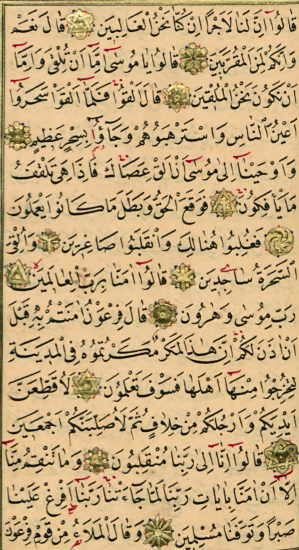 قالوا ان لنا لاجرا ان كنا نحن الغالبين قال نعم
وانكم لمن المقربين قالوا يا موسى اما ان تلقى واما
ان نكون نحن الملقين قال القوا فلما القوا سحروا
اعين الناس واسترهبوهم وجاؤا بسحر عظيم
واوحينا الى موسى ان الق عصاك فاذا هى تلقف
ما يافكون فوقع الحق وبطل ما كانوا يعملون
فغلبوا هنالك وانقلبوا صاغرين والقى
السحرة ساجدين قالوا امنا برب العالمين
رب موسى وهرون قال فرعون امنتم به قبل
ان اذن لكم ان هذا لمكر مكرتموه فى المدينة
لتخرجوا منها اهلها فسوف تعلمون لاقطعن
ايديكم وارجلكم من خلاف ثم لاصلبنكم اجمعين
قالوا انا الى ربنا منقلبون وما تنقم منا
الا ان امنا بايات ربنا لما جاءتنا ربنا افرغ علينا
صبرا وتوفنا مسلمين وقال الملاء من قوم فرعون